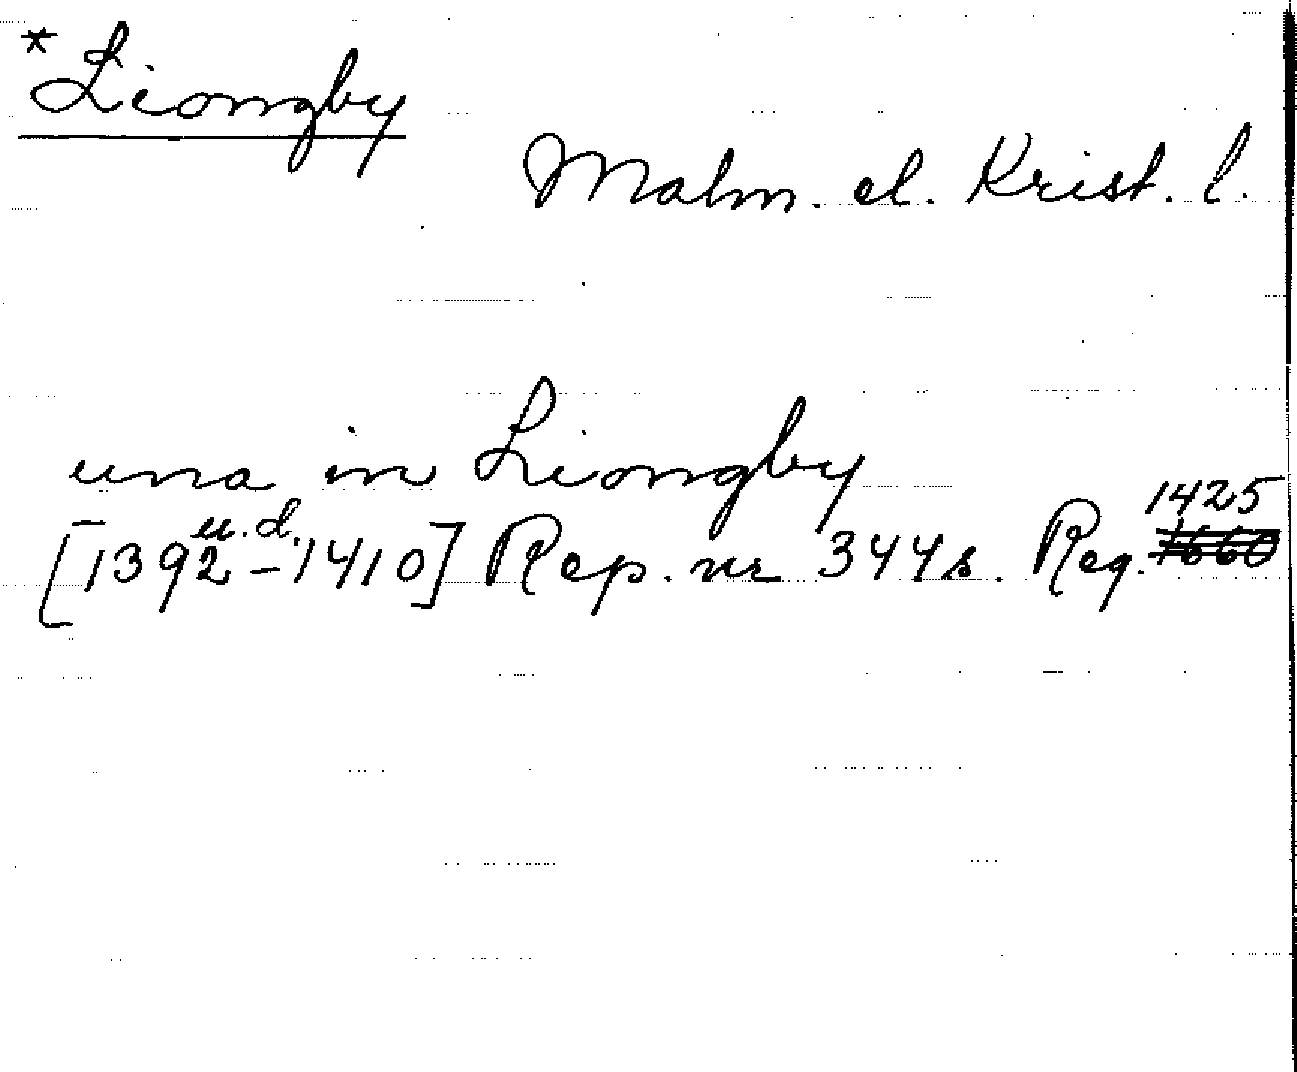 *Liongby
Malm. el. Krist. l.
una in Liongby
u.d. 1425
[1392-1410] Rep. nr 344s. Reg. 1660